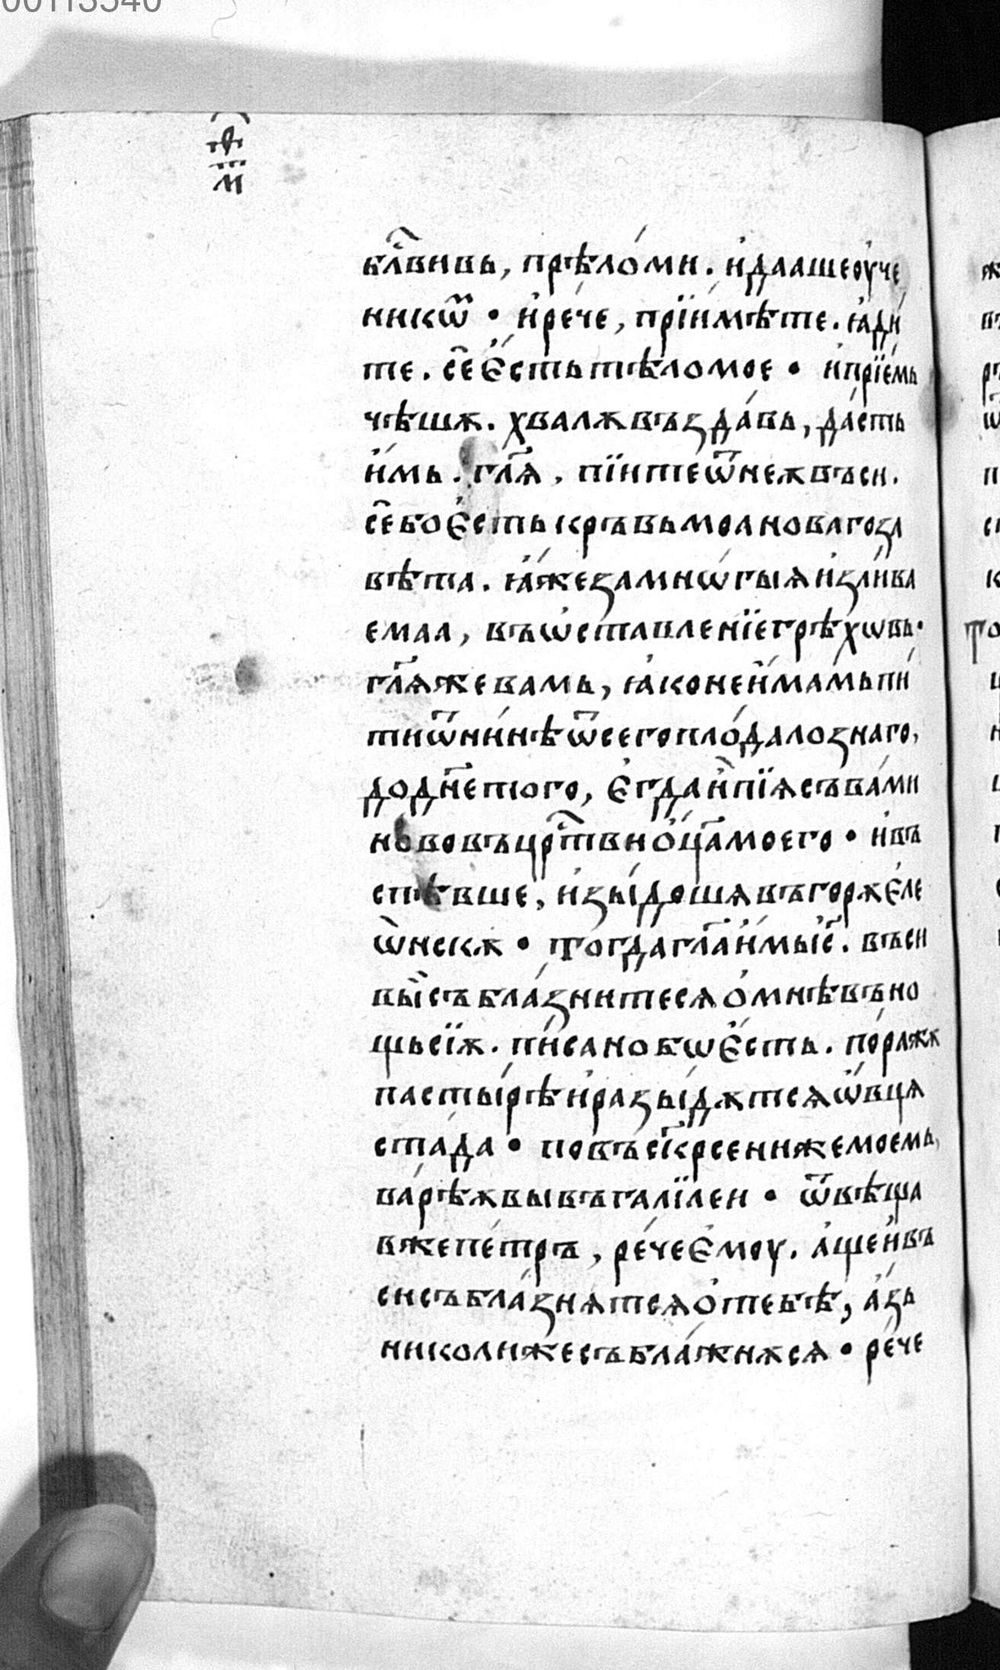 00113540
бл҃вивь, прѣломи. и҆дааше оу҆че
никѡⷨ • и҆ рече, прїимѣте. ꙗ҆ди
те. се҃ є҆сть тѣло мое • и҆ прїемь
чѣшѫ. хвалѫ въздавь, дасть
и҆мь. гл҃ѧ, пїите ѿ неѫ въси.
се҃ бо є҆сть кръвь моа новаго за
вѣта. ꙗ҆же за мнѡгыѧ и҆злива
емаа, въ ѡ҆ставленїе грѣхѡвь•
гл҃ѧ же вамь, ꙗ҆ко не и҆мамь пи
ти ѿ нинѣ ѿ сего плода лознаго,
до дн҃е того, є҆гда и҆ пїѧ съ вами
ново въ црⷭ҇тви о҆ц҃а моего • и҆ въ
спѣвше, и҆зыдошѧ въ горѫ є҆ле
ѡ҆нскѫ • тогда гл҃а и҆мь і҆с҃. въси
вы съблазните сѧ о҆ мнѣ въ но
щь сїѫ. писано бѡ є҆сть. поражѫ
пастырѣ и҆ разыдѫт сѧ ѡ҆вцѧ
стада • по въскрсени же моемь,
варѣѫ вы въ галїлеи • ѿвѣща
в же петръ, рече є҆моу. а҆ще и҆ въ
си съблазнѧт сѧ о҆ тебѣ, а҆зь
николиже съблажнѫ сѧ • рече